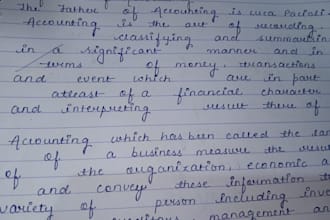 The Father of Accounting is Luca Pacioli.
Accounting is the art of recording,
classifying and summarizin
in a significant manner and in
terms of money, transactions
and event which are in part
atleast of a financial character
and interpreting result there of
Accounting which has been called the lan
of a business measure the resul
of the organization, economic a
and convey these information t
variety of person including inve
management an